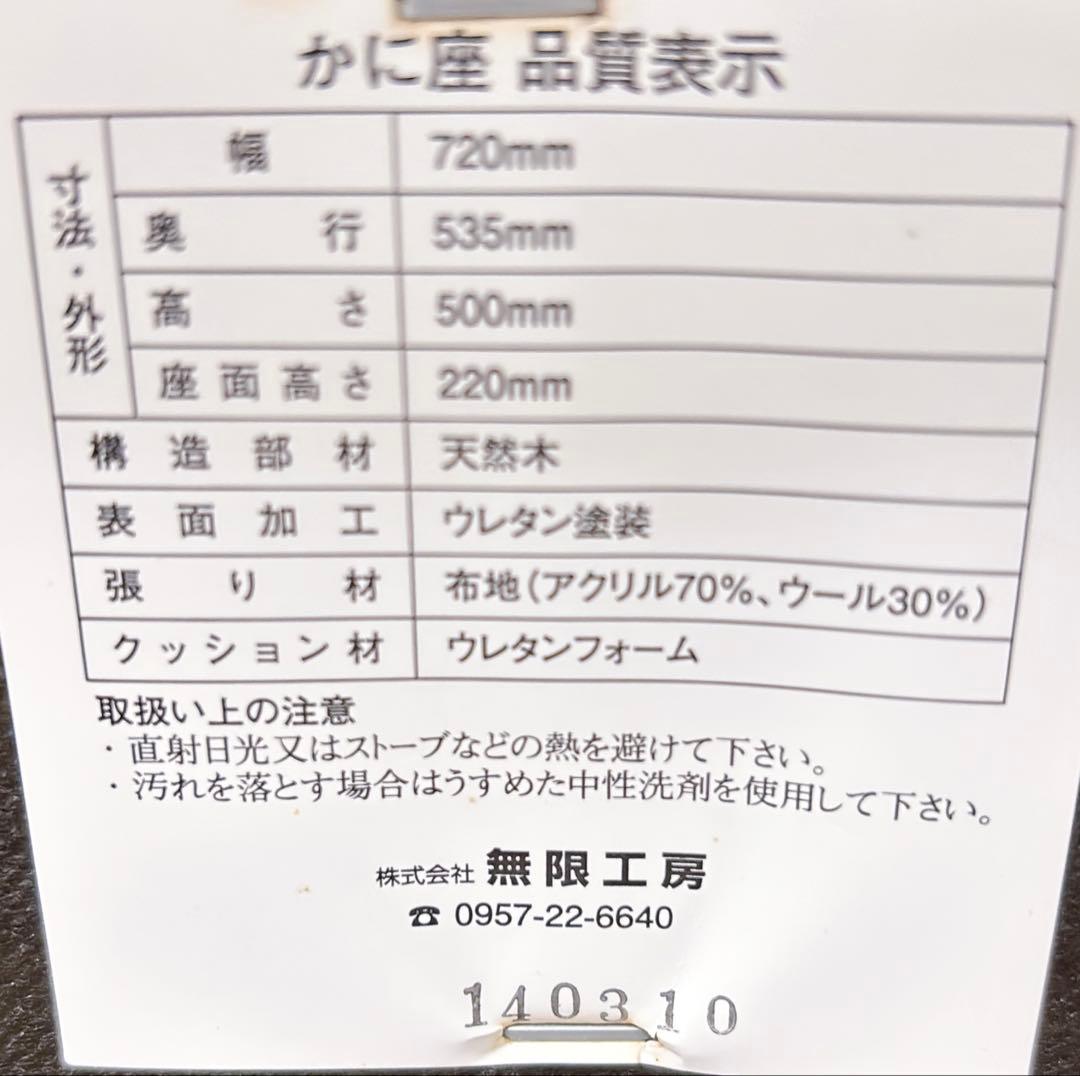 かに座 品質表示
寸法・外形
幅 720mm
奥行 535mm
高さ 500mm
座面高さ 220mm
構造部材 天然木
表面加工 ウレタン塗装
張り材 布地(アクリル70%、ウール30%)
クッション材 ウレタンフォーム
取扱い上の注意
・直射日光又はストーブなどの熱を避けて下さい。
・汚れを落とす場合はうすめた中性洗剤を使用して下さい。
株式会社 無限工房
☎ 0957-22-6640
140310